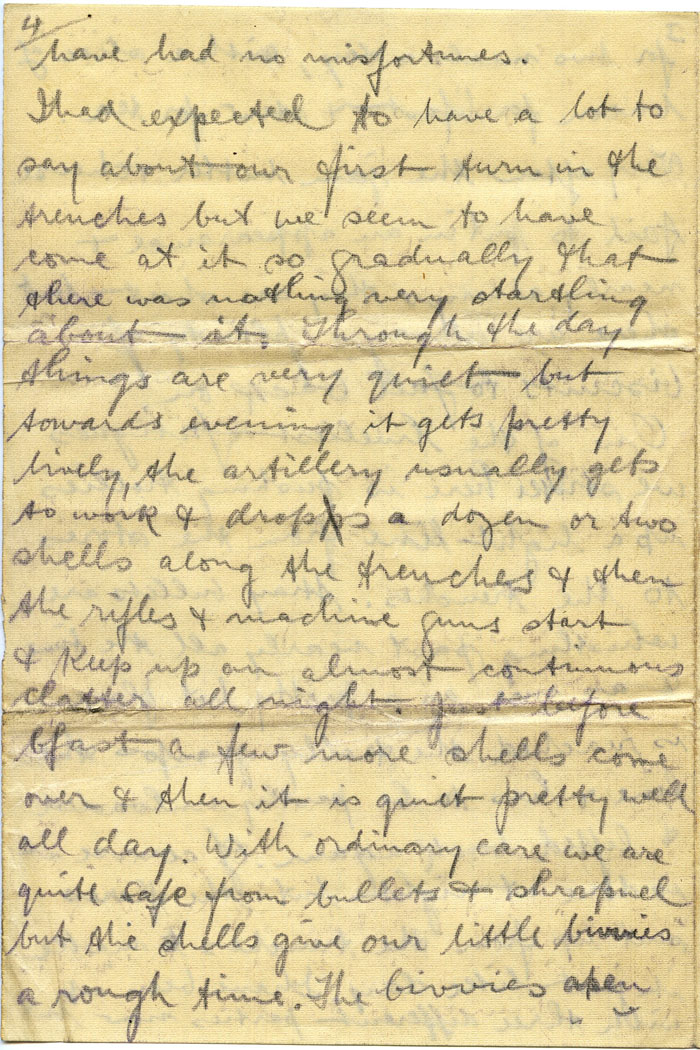 4
have had no misfortunes.
I had expected to have a lot to
say about our first turn in the
trenches but we seem to have
come at it so gradually that
there was nothing very startling
about it. Through the day
things are very quiet but
towards evening it gets pretty
lively, the artillery usually gets
to work & drops a dozen or two
shells along the trenches & then
the rifles & machine guns start
& keep up an almost continuous
clatter all night. Just before
bfast a few more shells come
over & then it is quiet pretty well
all day. With ordinary care we are
quite safe from bullets & shrapnel
but the shells give our little "bivvies"
a rough time. The bivvies